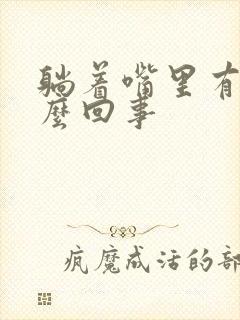 躺着嘴里有
麼回事
疯魔成活的部